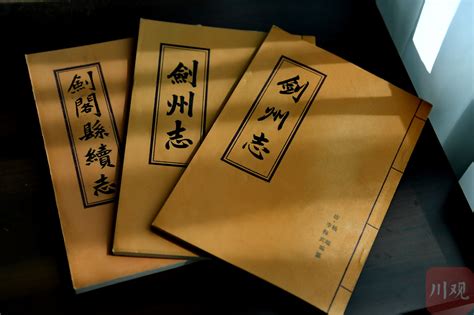 劍閣縣續志
劍州志
劍州志
川观